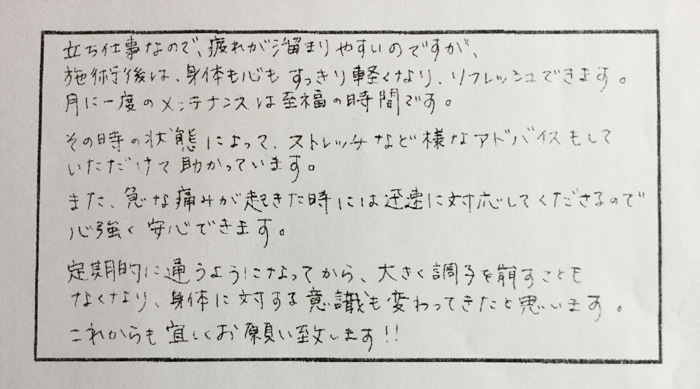 立ち仕事なので、疲れが溜まりやすいのですが、
施術後は、身体も心もすっきり軽くなり、リフレッシュできます。
月に一度のメンテナンスは至福の時間です。
その時の状態によって、ストレッチなど様なアドバイスもして
いただけて助かっています。
また、急な痛みが起きた時には迅速に対応してくださるので
心強く安心できます。
定期的に通うようになってから、大きく調子を崩すことも
なくなり、身体に対する意識も変わってきたと思います。
これからも宜しくお願い致します!!